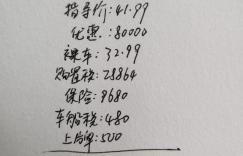 指导价:41.99
优惠:80000
裸车:32.99
购置税:28864
保险:9680
车船税:480
上户费:500